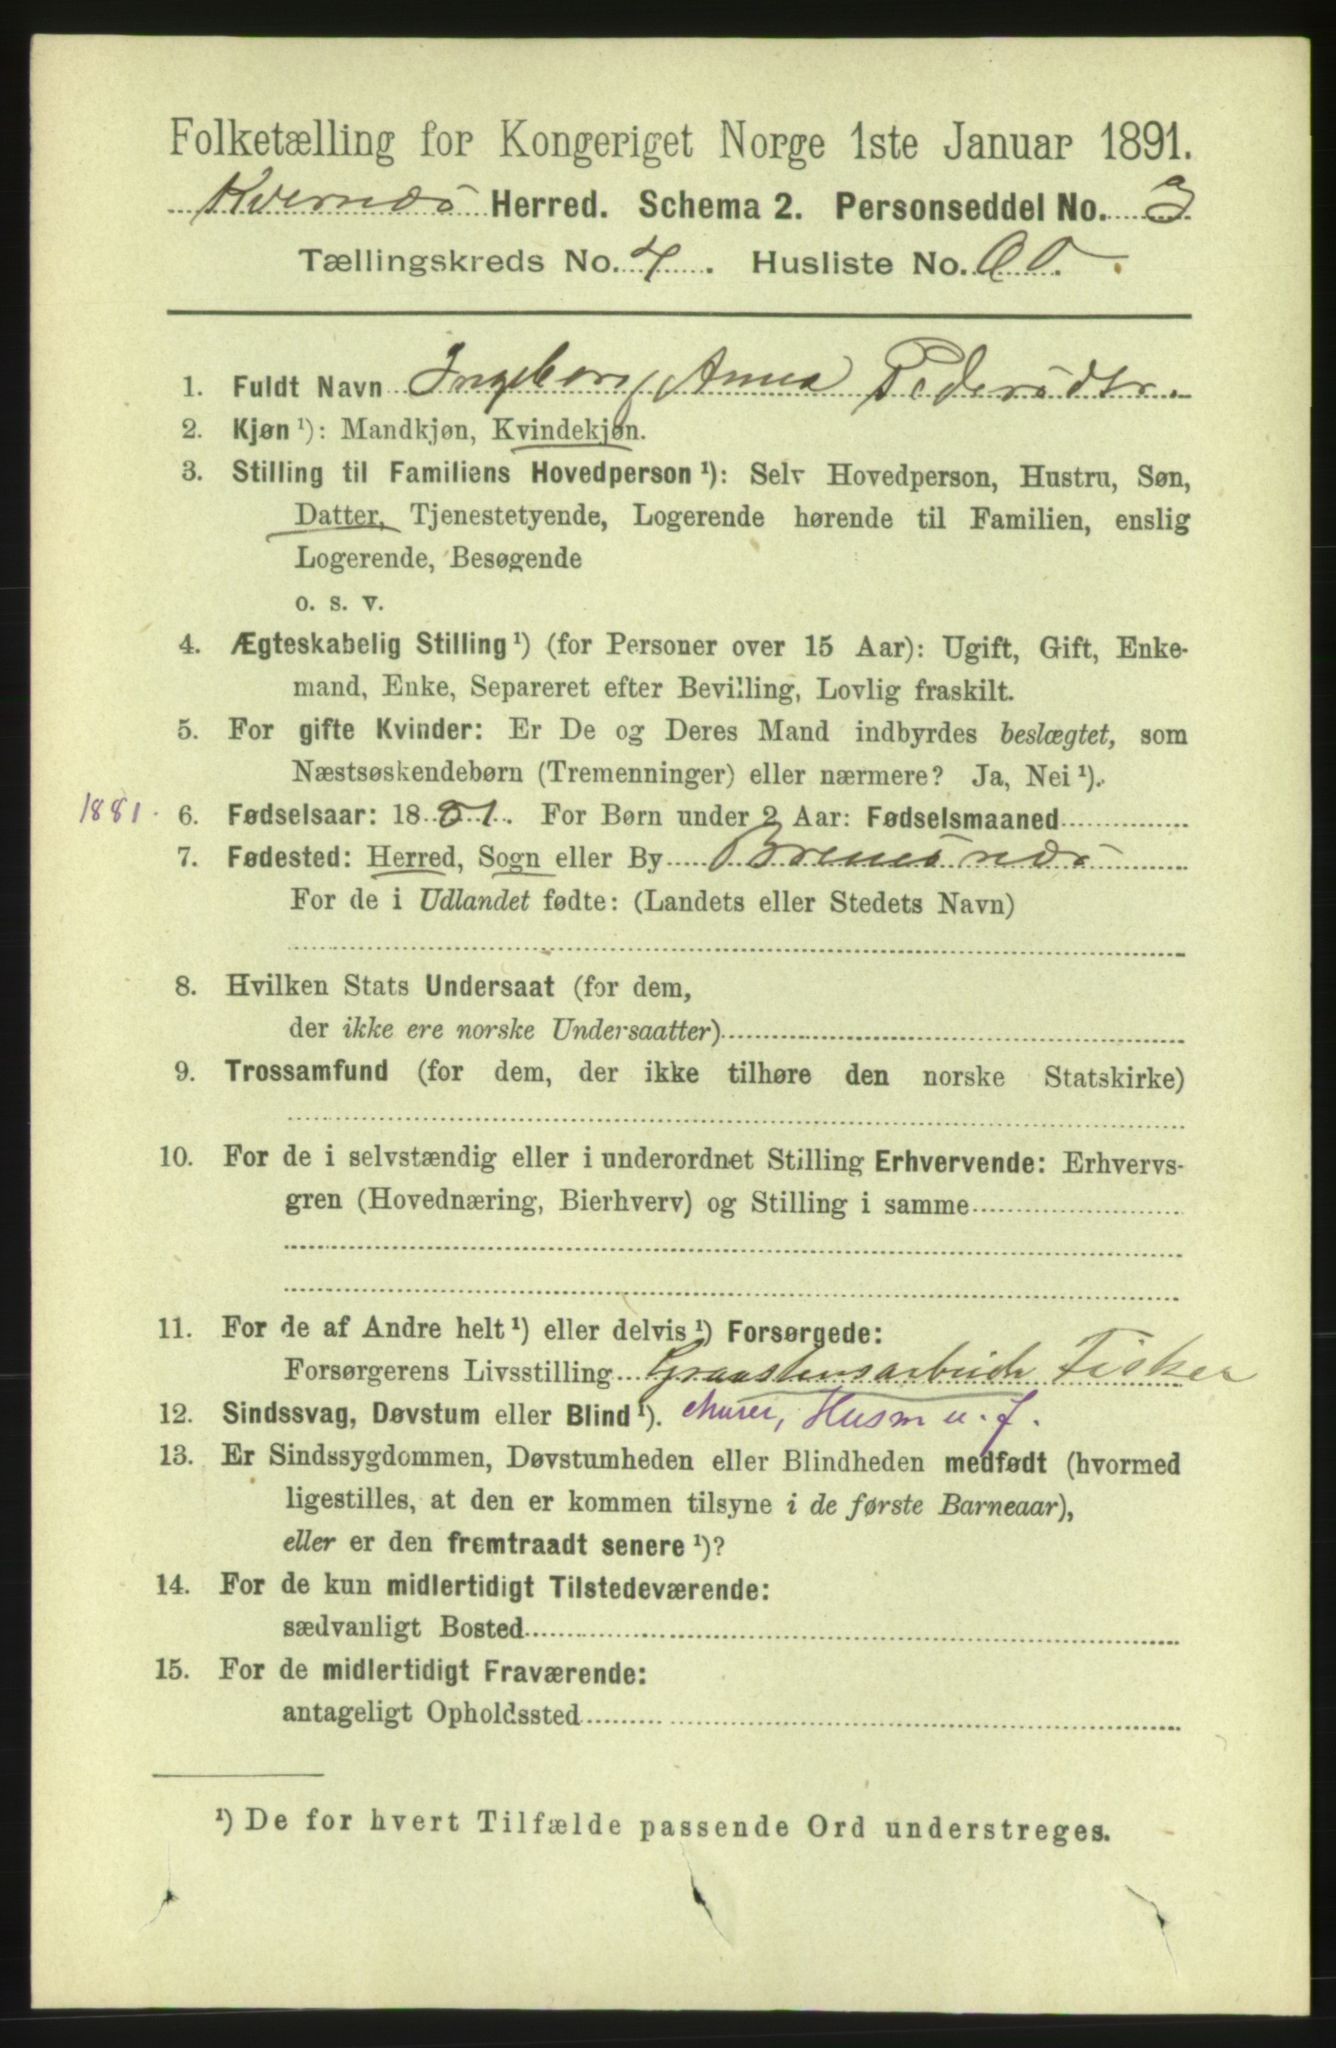 Folketælling for Kongeriget Norge 1ste Januar 1891.
Kvernæs Herred. Schema 2. Personseddel No. 3
Tællingskreds No. 4. Husliste No.
1. Fuldt Navn Ingeborg Anna Pedersdtr.
2. Kjøn ¹): Mandkjøn, Kvindekjøn.
3. Stilling til Familiens Hovedperson ¹): Selv Hovedperson, Hustru, Søn,
Datter, Tjenestetyende, Logerende hørende til Familien, enslig
Logerende, Besøgende
o. s. v.
4. Ægteskabelig Stilling ¹) (for Personer over 15 Aar): Ugift, Gift, Enke-
mand, Enke, Separeret efter Bevilling, Lovlig fraskilt.
5. For gifte Kvinder: Er De og Deres Mand indbyrdes beslægtet, som
Næstsøskendebørn (Tremenninger) eller nærmere? Ja, Nei ¹).
1881. 6. Fødselsaar: 1881. For Børn under 2 Aar: Fødselsmaaned
7. Fødested: Herred, Sogn eller By Bremsnæs
For de i Udlandet fødte: (Landets eller Stedets Navn)
8. Hvilken Stats Undersaat (for dem,
der ikke ere norske Undersaatter)
9. Trossamfund (for dem, der ikke tilhøre den norske Statskirke)
10. For de i selvstændig eller i underordnet Stilling Erhvervende: Erhvervs-
gren (Hovednæring, Bierhverv) og Stilling i samme
11. For de af Andre helt ¹) eller delvis ¹) Forsørgede:
Forsørgerens Livsstilling Graastensarbeider Fisker
12. Sindssvag, Døvstum eller Blind ¹). Murer, Husm u. J.
13. Er Sindssygdommen, Døvstumheden eller Blindheden medfødt (hvormed
ligestilles, at den er kommen tilsyne i de første Barneaar),
eller er den fremtraadt senere ¹)?
14. For de kun midlertidigt Tilstedeværende:
sædvanligt Bosted
15. For de midlertidigt Fraværende:
antageligt Opholdssted
¹) De for hvert Tilfælde passende Ord understreges.